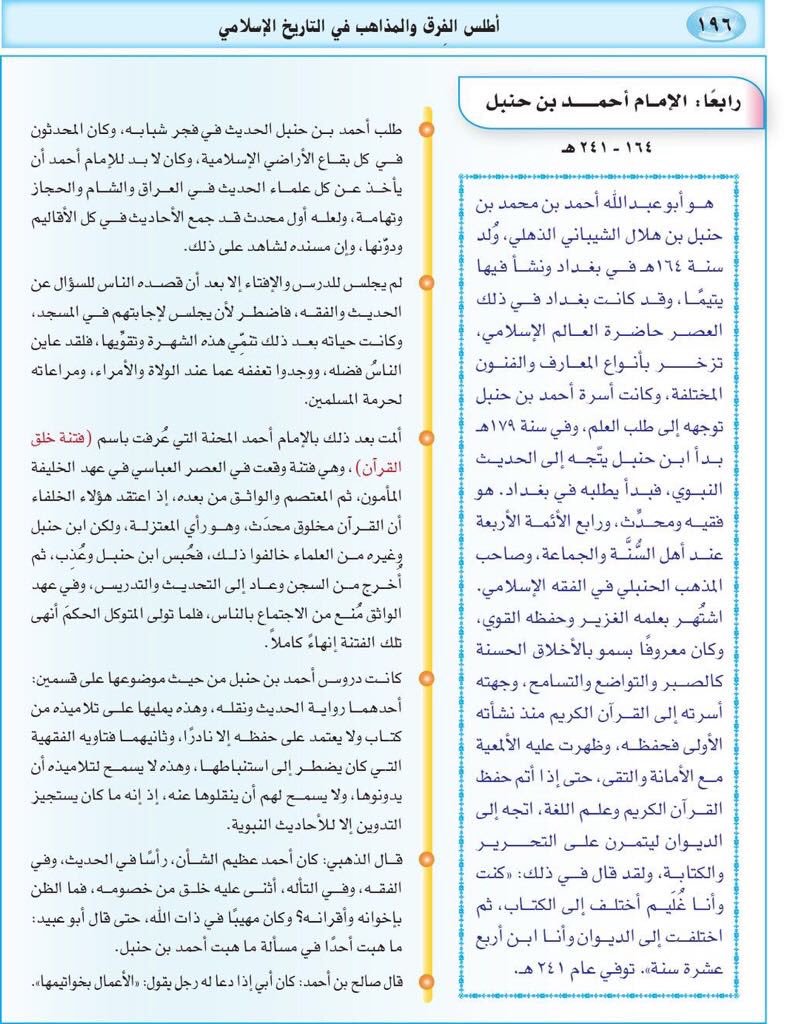 ١٩٦
أطلس الفِرق والمذاهب في التاريخ الإسلامي
رابعًا: الإمـام أحمـــد بن حنبل
١٦٤ - ٢٤١ هـ
هـو أبو عبـدالله أحمد بن محمد بن
حنبل بن هلال الشيباني الذهلي، وُلد
سنة ١٦٤هـ فـي بغداد ونشـأ فيهـا
يتيمًـا، وقد كانت بغداد فـي ذلك
العصر حاضرة العالم الإسلامي،
تزخـــر بـأنـواع المعـارف والفنـون
المختلفة، وكانت أسرة أحمد بن حنبل
توجهه إلى طلب العلم، وفي سنة ١٧٩هـ
بـدأ ابـن حنبـل يتّجـه إلى الحديث
النبوي، فبـدأ يطلبه في بغداد. هو
فقيـه ومحـدِّث، ورابـع الأئمـة الأربعة
عند أهل السُّنَّـة والجماعة، وصاحب
المذهب الحنبلي في الفقه الإسلامي.
اشتُهـر بعلمه الغزيـر وحفظـه القوي،
وكان معروفًا بسمو بالأخلاق الحسنة
كالصبـر والتواضع والتسامح، وجهته
أسرته إلى القـرآن الكريم منذ نشأته
الأولى فحفظـه، وظهرت عليه الألمعية
مـع الأمانة والتقى، حتى إذا أتم حفظ
القـرآن الكريم وعلـم اللغة، اتجه إلى
الديـوان ليتمـرن علـى التحــريـر
والكتابة، ولقد قال في ذلك: «كنت
وأنـا غُلَيـم أختلـف إلى الكتـاب، ثم
اختلفـت إلى الديـوان وأنـا ابـن أربع
عشرة سنة». توفي عام ٢٤١ هـ.
طلب أحمد بـن حنبل الحديث في فجر شبابـه، وكان المحدثون
فـي كل بقـاع الأراضي الإسلامية، وكان لا بـد للإمام أحمد أن
يأخـذ عـن كل علمـاء الحديث فـي العـراق والشـام والحجاز
وتهامـة، ولعلـه أول محدث قـد جمع الأحاديث فـي كل الأقاليم
ودوّنها، وإن مسنده لشاهد على ذلك.
لم يجلـس للدرس والإفتاء إلا بعد أن قصـده الناس للسؤال عن
الحديـث والفقـه، فاضطـر لأن يجلس لإجابتهم فـي المسجد،
وكانـت حياته بعد ذلك تنمِّي هـذه الشهرة وتقوِّيها، فلقد عاين
الناسُ فضله، ووجدوا تعففه عما عند الولاة والأمراء، ومراعاته
لحرمة المسلمين.
ألمت بعد ذلك بالإمام أحمد المحنة التي عُرفت باسم (فتنة خلق
القرآن)، وهي فتنة وقعت في العصر العباسي في عهد الخليفة
المأمون، ثم المعتصم والواثق من بعده، إذ اعتقد هؤلاء الخلفاء
أن القـرآن مخلوق محدَث، وهـو رأي المعتزلـة، ولكن ابن حنبل
وغيره من العلماء خالفوا ذلـك، فحُبس ابن حنبـل وعُذِّب، ثم
أُخـرج مـن السجن وعـاد إلى التحديـث والتدريـس، وفي عهد
الواثق مُنـع من الاجتماع بالناس، فلما تولى المتوكل الحكمَ أنهى
تلك الفتنة إنهاءً كاملاً.
كانـت دروس أحمد بن حنبل من حيـث موضوعها على قسمين:
أحدهمـا روايـة الحديث ونقلـه، وهذه يمليها علـى تلاميذه من
كتـاب ولا يعتمد على حفظـه إلا نادرًا، وثانيهمـا فتاويه الفقهية
التي كان يضطر إلى استنباطهـا، وهذه لا يسمـح لتلاميذه أن
يدونوها، ولا يسمـح لهم أن ينقلوها عنه، إذ إنه ما كان يستجيز
التدوين إلا للأحاديث النبوية.
قـال الذهبي: كان أحمد عظيم الشـأن، رأسًا في الحديث، وفي
الفقه، وفي التأله، أثنـى عليه خلـق من خصومـه، فما الظن
بإخوانه وأقرانـه؟ وكان مهيبًا في ذات الله، حتى قال أبو عبيد:
ما هبت أحدًا في مسألة ما هبت أحمد بن حنبل.
قال صالح بن أحمد: كان أبي إذا دعا له رجل يقول: «الأعمال بخواتيمها».